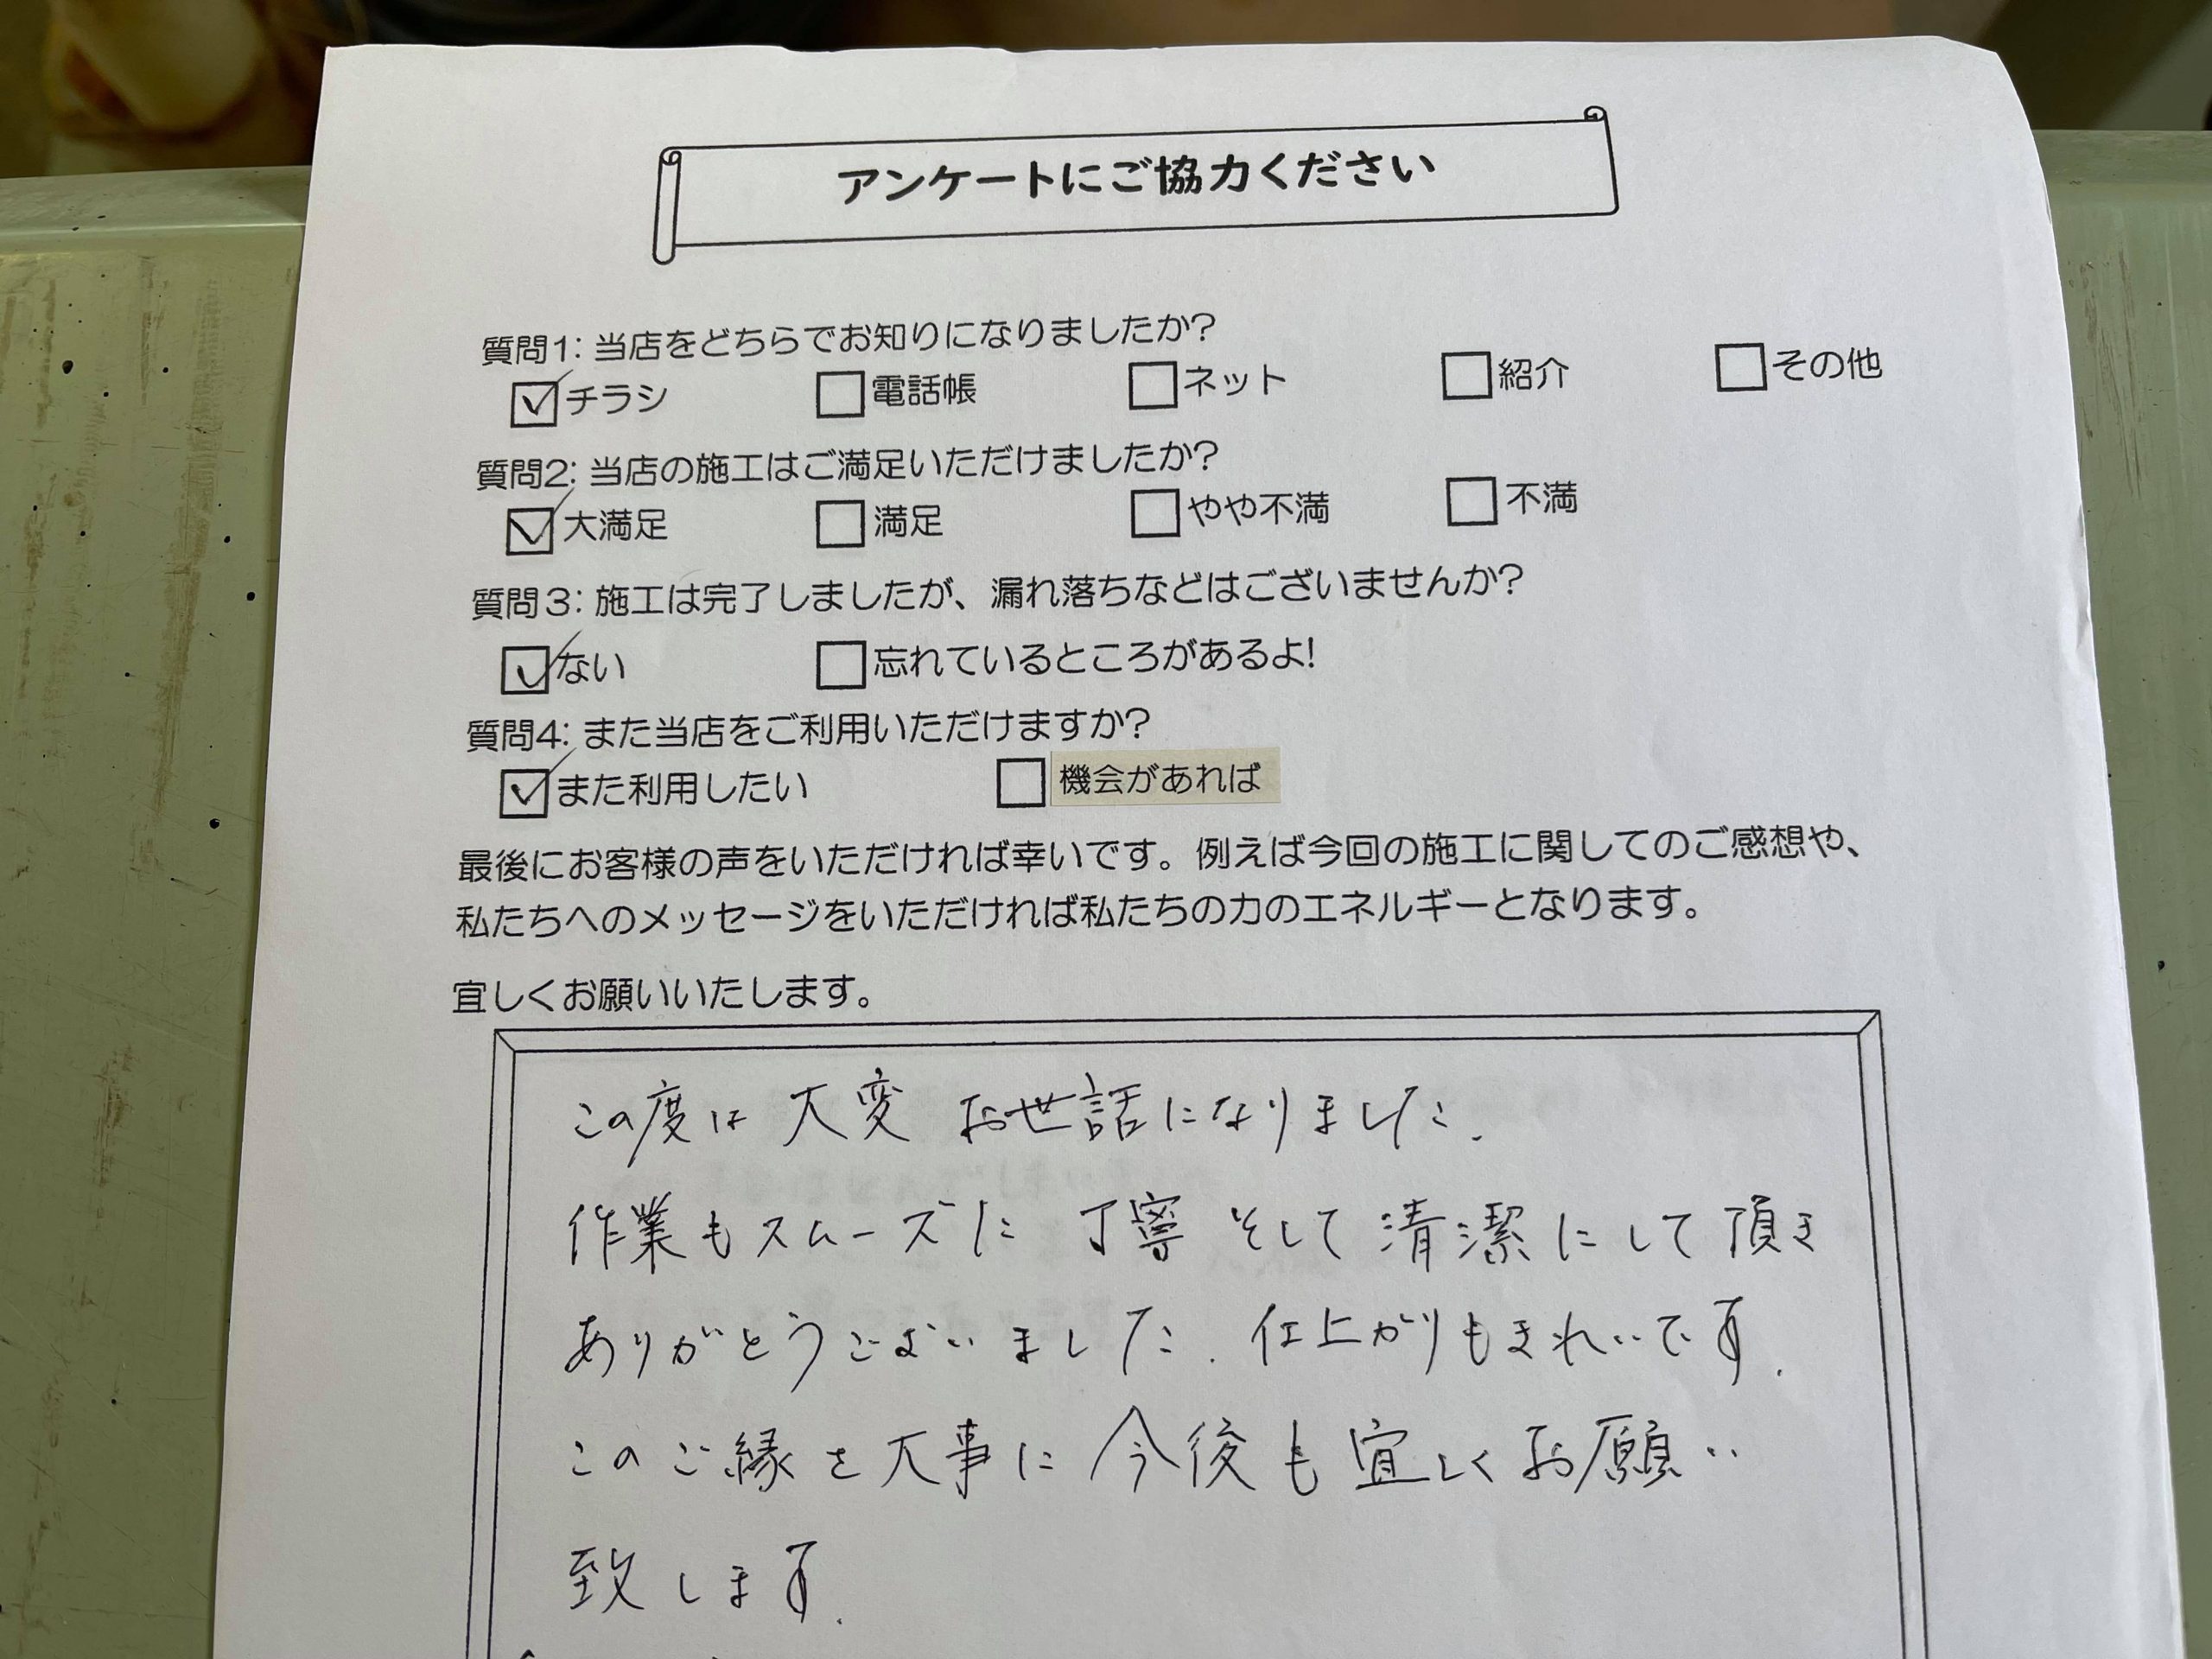 アンケートにご協力ください
質問1: 当店をどちらでお知りになりましたか?
☑チラシ □電話帳 □ネット □紹介 □その他
質問2: 当店の施工はご満足いただけましたか?
☑大満足 □満足 □やや不満 □不満
質問3: 施工は完了しましたが、漏れ落ちなどはございませんか?
☑ない □忘れているところがあるよ!
質問4: また当店をご利用いただけますか?
☑また利用したい □機会があれば
最後にお客様の声をいただければ幸いです。例えば今回の施工に関してのご感想や、
私たちへのメッセージをいただければ私たちの力のエネルギーとなります。
宜しくお願いいたします。
この度は大変お世話になりました.
作業もスムーズに丁寧そして清潔にして頂き
ありがとうございました. 仕上がりもきれいです.
このご縁を大事に今後も宜しくお願い
致します.